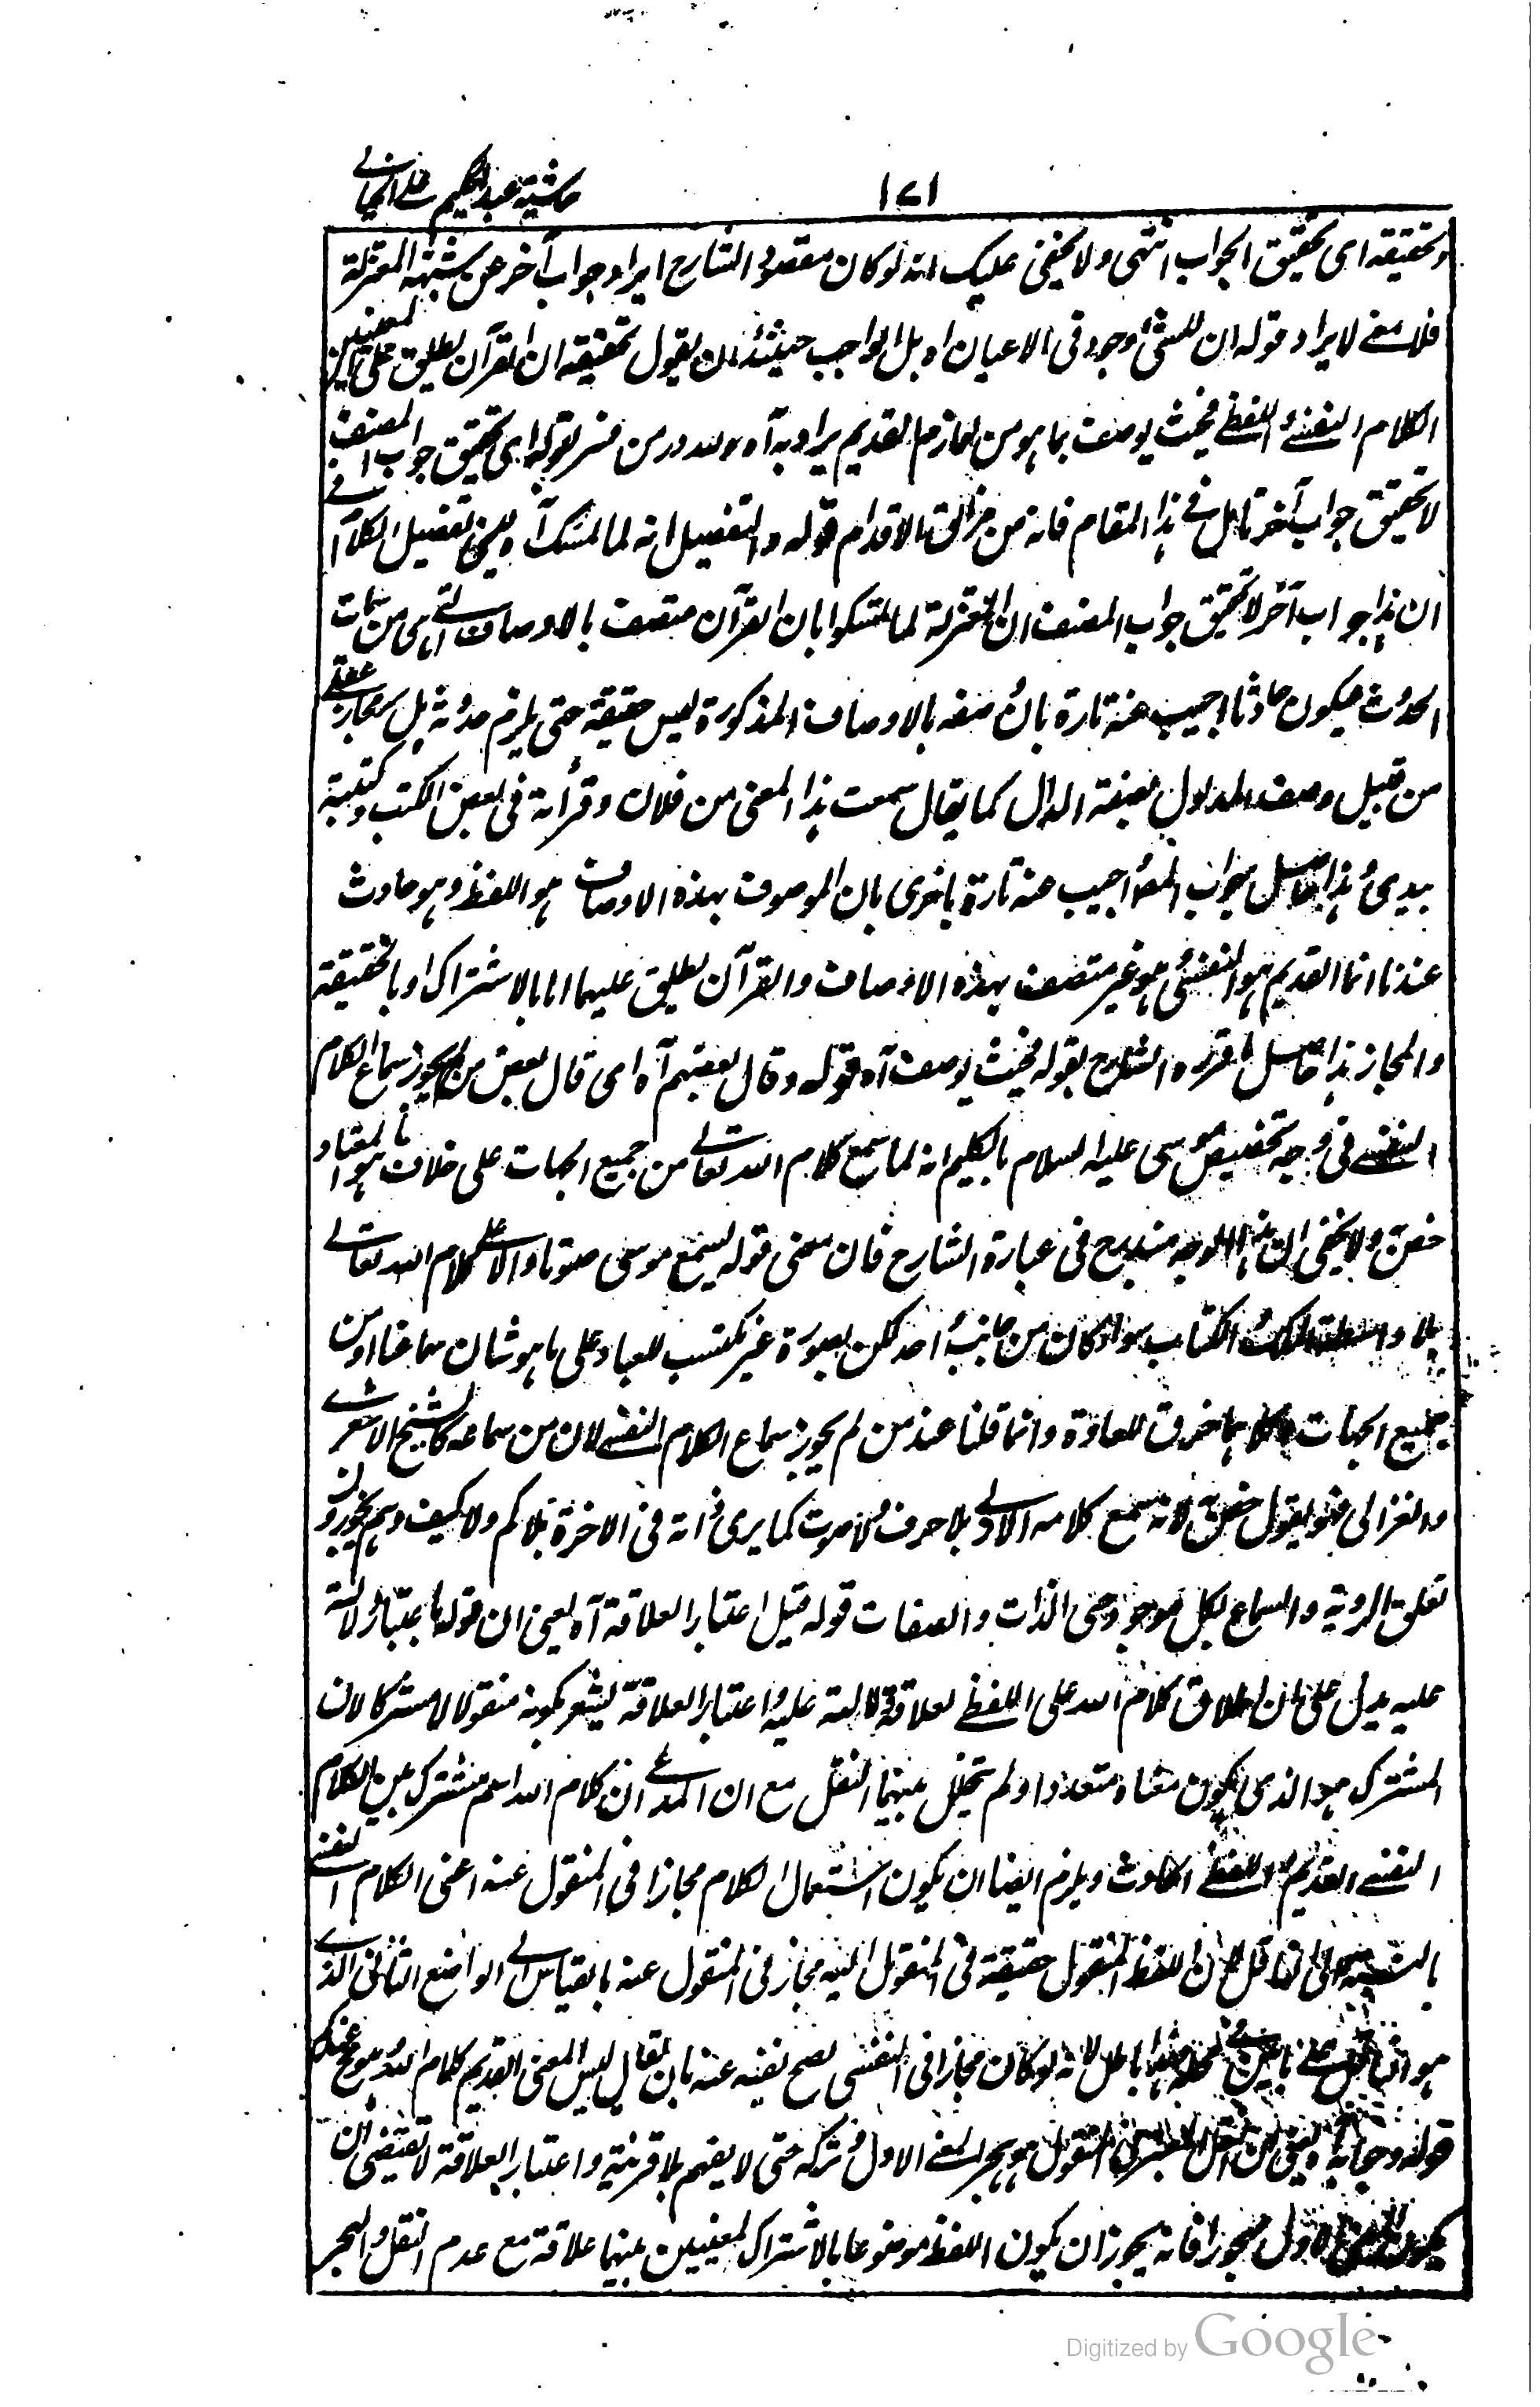 ١٧١
حاشية عبد الحكيم على الخيالى
وتحقيقه اى تحقيق الجواب انتهى ولا يخفى عليك انه لو كان مقصود الشارح ايراد جواب آخر عن شبهة المعتزلة
فلا معنى لايراد قوله ان للشئ وجود فى الاعيان اه بل الواجب حينئذ ان يقول تحقيقه ان القرآن يطلق على المعنيين
الكلام النفسى واللفظى فحيث يوصف بما هو من لوازم القديم يراد به آه ولله در من فسر قوله اى تحقيق جواب المصنف
لا تحقيق جواب آخر تامل فى هذا المقام فانه من مزالق الاقدام قوله والتفصيل انه لما تمسك آه يعنى تفصيل الكلام فى
ان هذا جواب آخر لا تحقيق جواب المصنف ان المعتزلة لما تمسكوا بان القرآن متصف بالاوصاف التى هى من سمات
الحدوث فيكون حادثا اجيب عنه تارة بان وصفه بالاوصاف المذكورة ليس حقيقة حتى يلزم حدوثه بل مجاز عقلى
من قبيل وصف المدلول بصفة الدال كما يقال سمعت هذا المعنى من فلان وقرأته فى بعض الكتب وكتبته
بيدى هذا حاصل جواب المص واجيب عنه تارة باخرى بان الموصوف بهذه الاوصاف هو اللفظ وهو حادث
عندنا انما القديم هو النفسى وهو غير متصف بهذه الاوصاف والقرآن يطلق عليهما اما بالاشتراك او بالحقيقة
والمجاز هذا حاصل ما قرره الشارح بقوله فحيث يوصف آه قوله وقال بعضهم آه اى قال بعض من لم يجوز سماع الكلام
النفسى فى وجه تخصيص موسى عليه السلام بالكليم انه لما سمع كلام الله تعالى من جميع الجهات على خلاف ما هو المعتاد
خص به ولا يخفى ان هذا الوجه مندرج فى عبارة الشارح فان معنى قوله يسمع موسى صوتا دالا على كلام الله تعالى
بلا واسطة الملك والكتاب سواء كان من جانب واحد لكن بصورة غير مكتسب للعباد على ما هو شان سماعنا او من
جميع الجهات وكلاهما خرق للعادة وانما قلنا عند من لم يجوز سماع الكلام النفسى لان من سماعه كالشيخ الاشعرى
والغزالى فهو يقول خص به لانه سمع كلامه الازلى بلا حرف ولا صوت كما يرى ذاته فى الاخرة بلا كم ولا كيف وهم يجوزون
تعلق الروية والسماع بكل موجود حتى الذات والصفات قوله قيل اعتبار العلاقة آه يعنى ان قوله باعتبار دلالته
عليه يدل على ان اطلاق كلام الله على اللفظى لعلاقة دلالته عليه واعتبار العلاقة يشعر بكونه منقولا لا مشتركا لان
المشترك هو الذى يكون معناه متعددا ولم يتخلل بينهما النقل مع ان المدعى ان كلام الله اسم مشترك بين الكلام
النفسى القديم واللفظى الحادث ويلزم ايضا ان يكون استعمال الكلام مجازا فى المنقول عنه اعنى الكلام النفسى
بالنسبة الى الناقل لان اللفظ المنقول حقيقة فى المنقول اليه مجاز فى المنقول عنه بالقياس الى الواضع الثانى الذى
هو الناقل على ما بين فى محله وهذا باطل لانه لو كان مجازا فى النفسى يصح نفيه عنه بان يقال ليس المعنى القديم كلام الله
قوله وجوابه آه يعنى ان النقل المعتبر فى المنقول هو هجر المعنى الاول وتركه حتى لا يفهم بلا قرينة واعتبار العلاقة لا تقتضى ان
يكون المعنى الاول مهجورا فانه يجوز ان يكون اللفظ موضوعا بالاشتراك لمعنيين بينهما علاقة مع عدم النقل والهجر
Digitized by Google